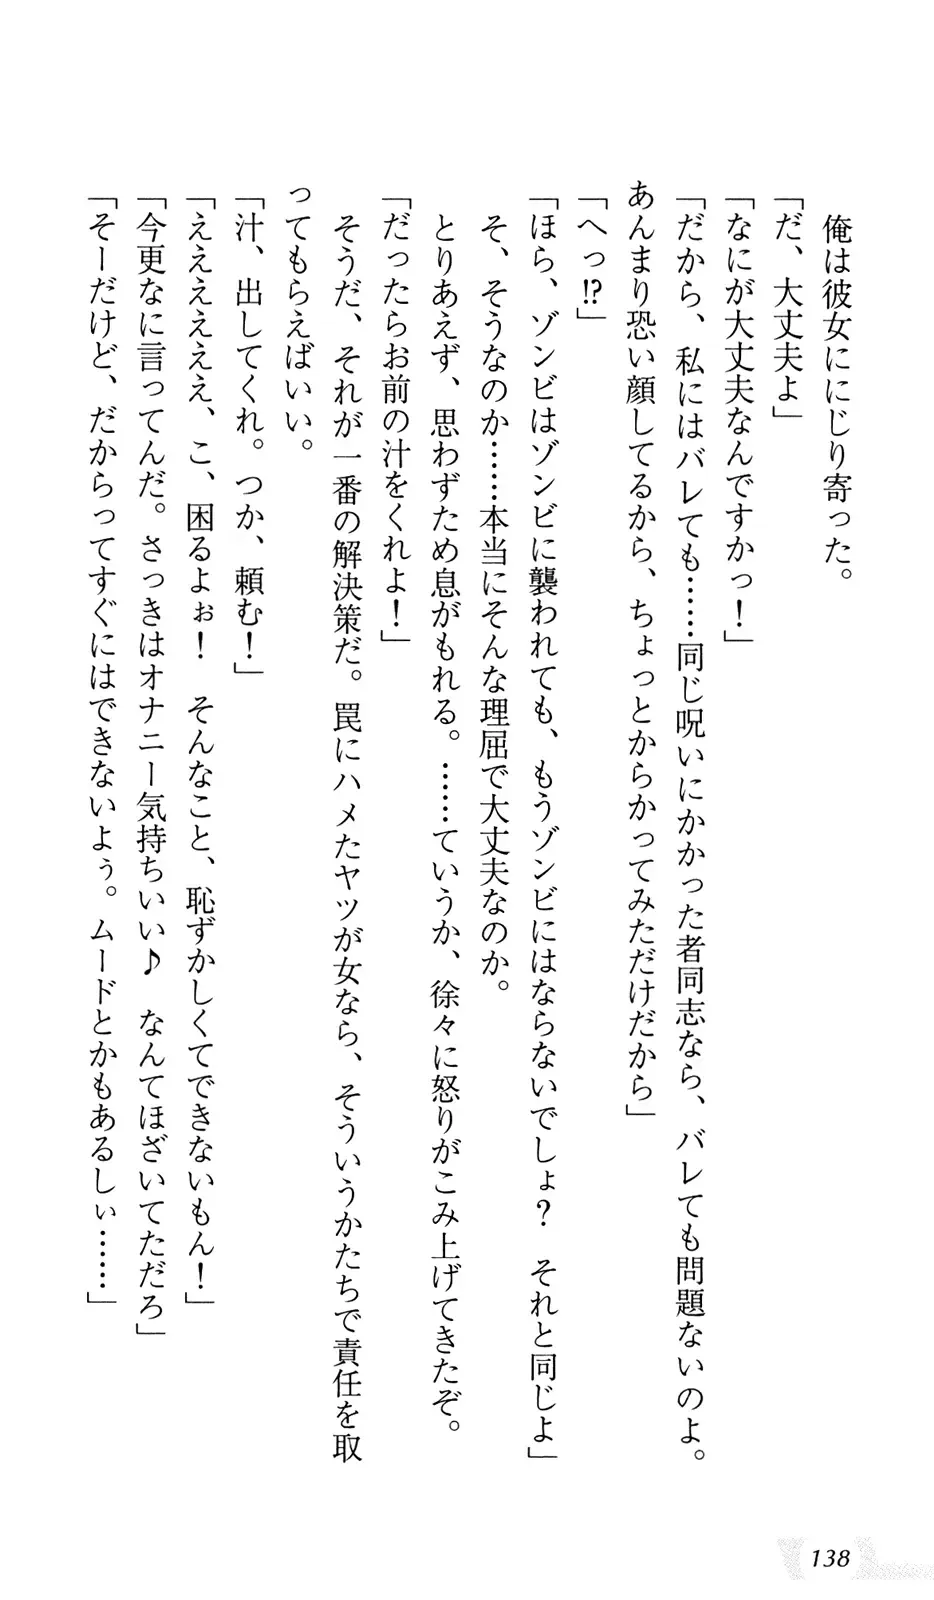 俺は彼女ににじり寄った。
「だ、大丈夫よ」
「なにが大丈夫なんですかっ！」
「だから、私にはバレても……同じ呪いにかかった者同志なら、バレても問題ないのよ。
あんまり恐い顔してるから、ちょっとからかってみただけだから」
「へっ!?」
「ほら、ゾンビはゾンビに襲われても、もうゾンビにはならないでしょ？　それと同じよ」
そ、そうなのか……本当にそんな理屈で大丈夫なのか。
とりあえず、思わずため息がもれる。……ていうか、徐々に怒りがこみ上げてきたぞ。
「だったらお前の汁をくれよ！」
そうだ、それが一番の解決策だ。罠にハメたヤツが女なら、そういうかたちで責任を取
ってもらえばいい。
「汁、出してくれ。つか、頼む！」
「えええええ、こ、困るよぉ！　そんなこと、恥ずかしくてできないもん！」
「今更なに言ってんだ。さっきはオナニー気持ちいい♪　なんてほざいてただろ」
「そーだけど、だからってすぐにはできないよぅ。ムードとかもあるしぃ……」
138